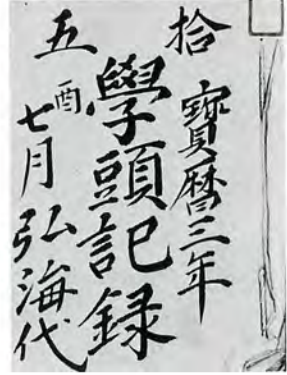 拾
寶曆三年
學頭記録
五
酉七月
弘海代